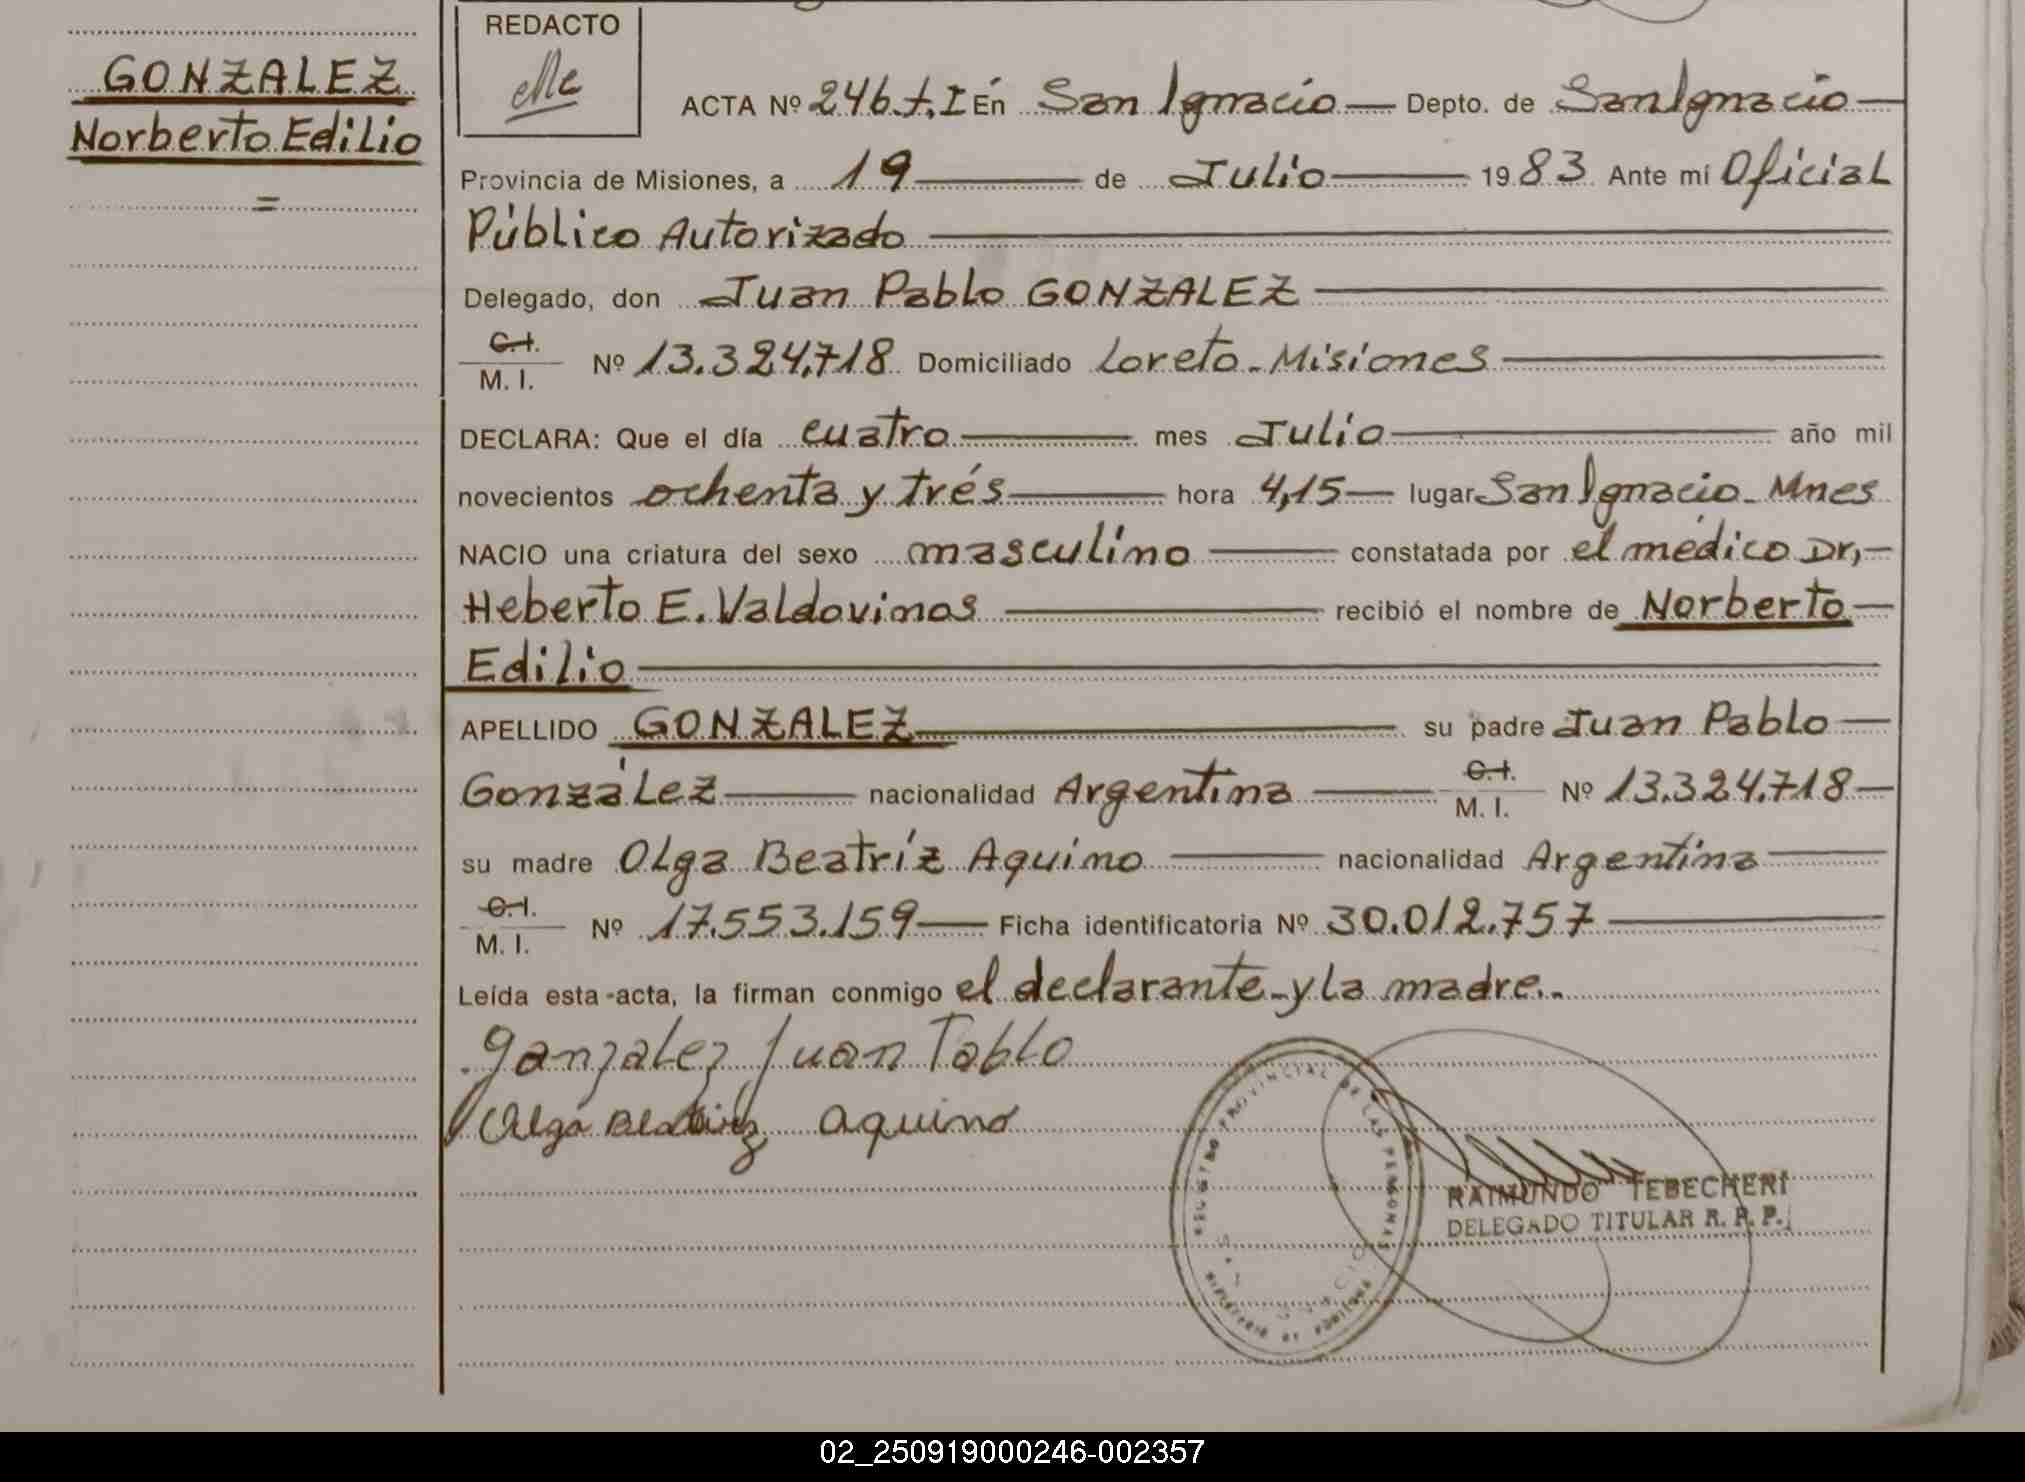 GONZALEZ
Norberto Edilio
=
REDACTO
ACTA Nº 246.t.I En San Ignacio Depto. de San Ignacio
Provincia de Misiones, a 19 de Julio 1983 Ante mí Oficial
Público Autorizado
Delegado, don Juan Pablo GONZALEZ
C.I.
M. I. Nº 13.324.718 Domiciliado Loreto-Misiones
DECLARA: Que el día cuatro mes Julio año mil
novecientos ochenta y trés hora 4,15 lugar San Ignacio-Mnes
NACIO una criatura del sexo masculino constatada por el médico Dr,
Heberto E. Valdovinos recibió el nombre de Norberto
Edilio
APELLIDO GONZALEZ su padre Juan Pablo
González nacionalidad Argentina C.I. M. I. Nº 13.324.718
su madre Olga Beatríz Aquino nacionalidad Argentina
C.I.
M. I. Nº 17.553.159 Ficha identificatoria Nº 30.012.757
Leída esta acta, la firman conmigo el declarante-y la madre.-
Gonzalez Juan Pablo
Olga Beatriz Aquino
REGISTRO PROVINCIAL DE LAS PERSONAS
RAIMUNDO TEBECHERI
DELEGADO TITULAR R. P. P.
02_250919000246-002357